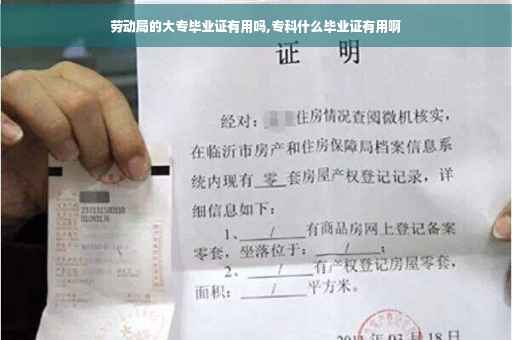 劳动局的大专毕业证有用吗,专科什么毕业证有用啊
证 明
经对: 住房情况查阅微机核实,
在临沂市房产和住房保障局档案信息系
统内现有 零 套房屋产权登记记录, 详
细信息如下:
1、 / 有商品房网上登记备案
零套, 坐落位于: / ;
2、 / 有产权登记房屋零套,
面积: / 平方米。